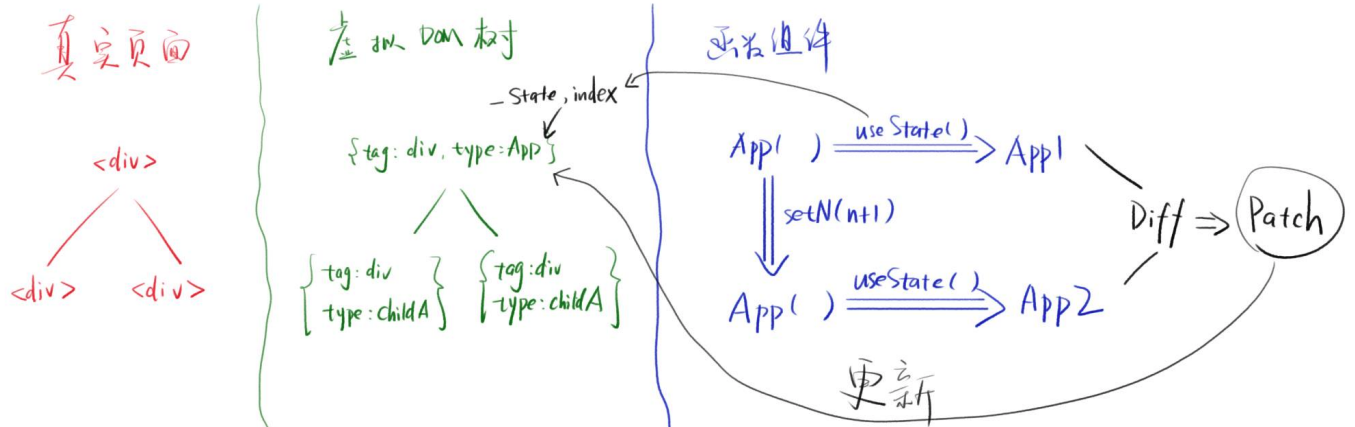 真实页面
<div>
<div> <div>
虚拟 DOM 树
_state, index
{tag: div, type: App}
{ tag: div
type: childA }
{ tag: div
type: childA }
函数组件
App( ) useState() App1
setN(n+1)
App( ) useState() App2
Diff ⇒ Patch
更新